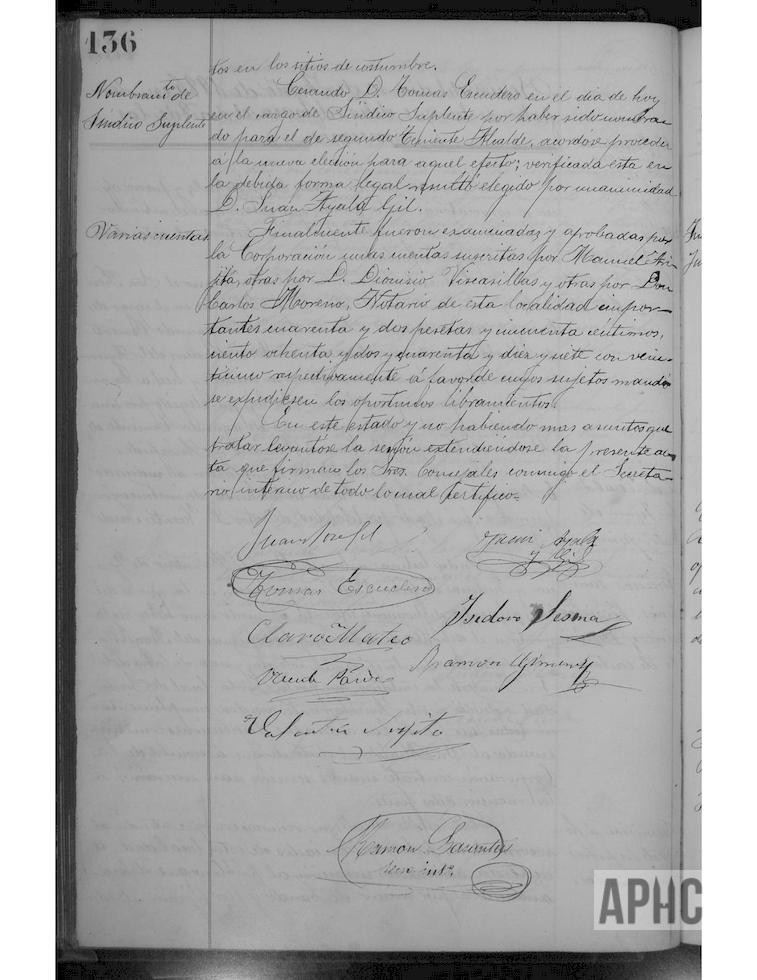 136
tos en los sitios de costumbre.
Nombramto de
Síndico Suplente
Cesando D. Tomas Escudero en el dia de hoy
en el cargo de Síndico Suplente por haber sido nombra-
do para el de segundo Teniente Alcalde, acordóse proceder
á la nueva elección para aquel efecto; verificada esta en
la debida forma legal resultó elegido por unanimidad
D. Juan Ayala Gil.
Varias cuentas
Finalmente fueron examinadas y aprobadas por
la Corporación unas cuentas suscritas por Manuel
otras por D. Dionisio Viscasillas y otras por Don
Carlos Moreno, Notario de esta localidad impor-
tantes cuarenta y dos pesetas y cincuenta céntimos,
ciento ochenta y dos y cuarenta y diez y siete con vein-
ticinco respectivamente á favor de cuyos sujetos mandó
se expidiesen los oportunos libramientos.
En este estado y no habiendo mas asuntos que
tratar levantóse la sesión extendiéndose la presente ac-
ta que firman los Sres. Concejales conmigo el Secreta-
rio interino de todo lo cual certifico=
Juan José Gil
Juan Ayala
y Gil
Tomas Escudero
Isidoro Sesma
Claro Mateo
Ramon Gimenez
Vicente
Valentin
Ramon
Srio intº.
APHC